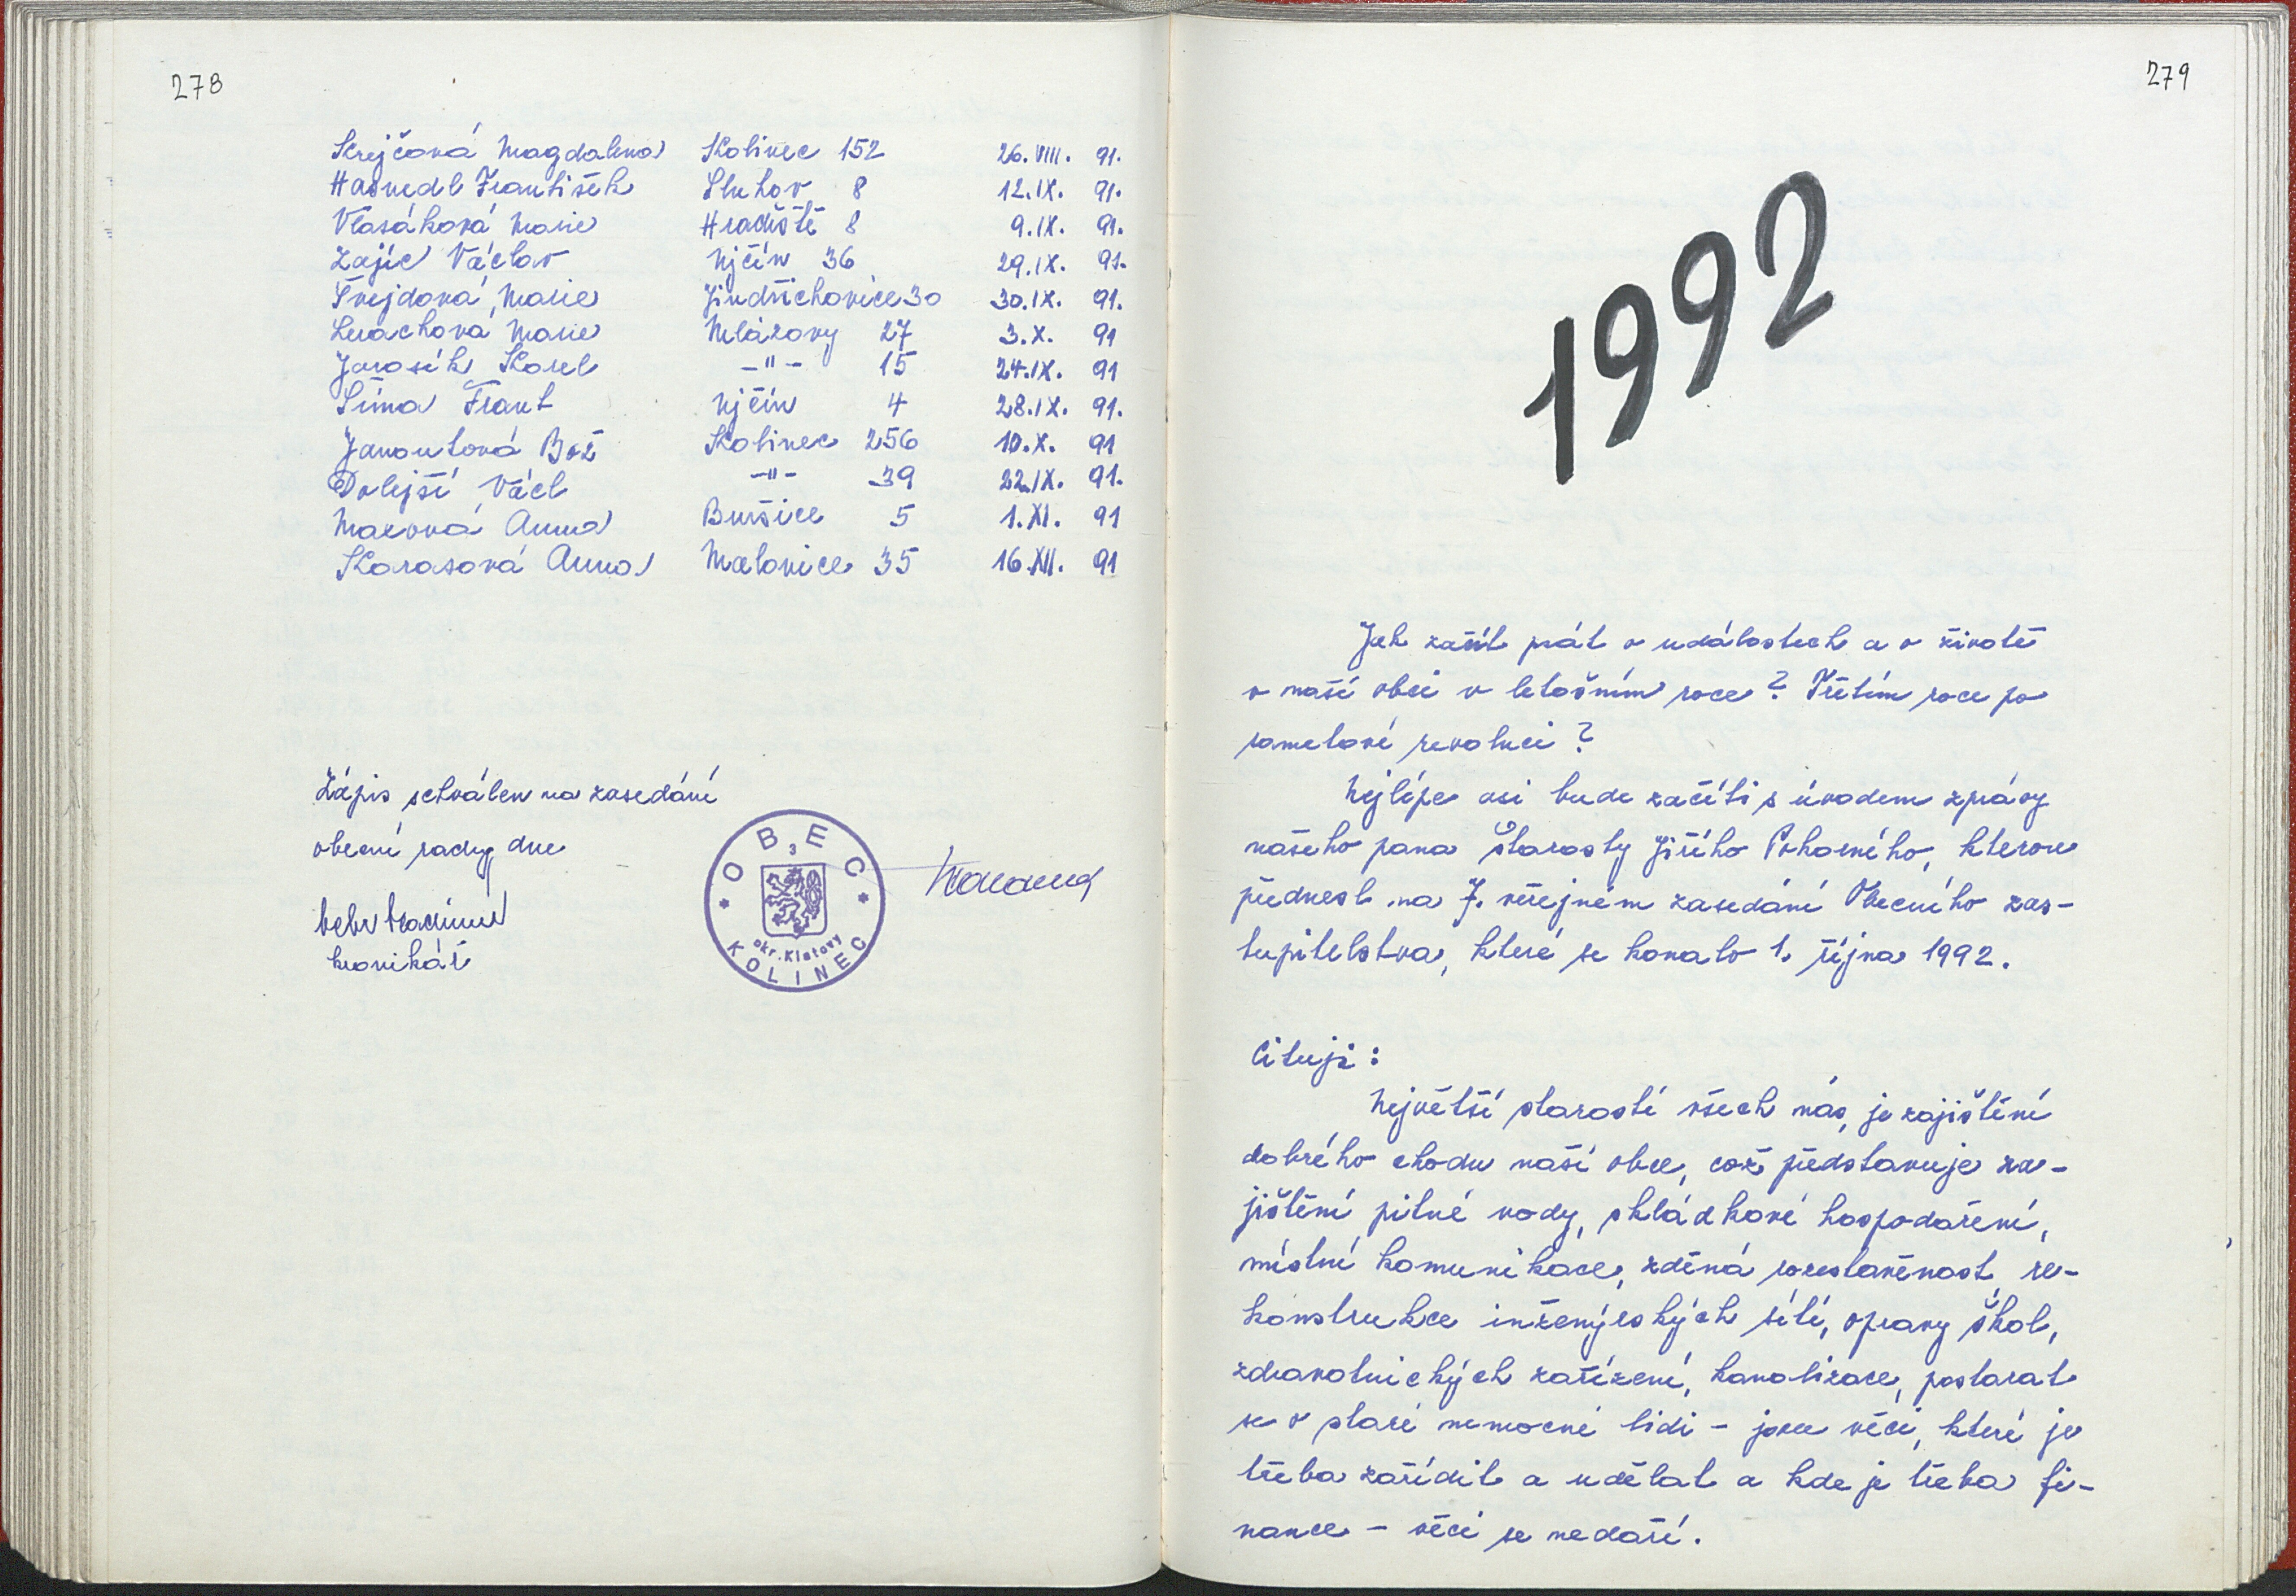 278
Krejčová Magdalena Kolinec 152 26. VIII. 91.
Hasnedl František Sluhov 8 12. IX. 91.
Vlasáková Marie Hradiště 8 9. IX. 91.
Zajíc Václav Ujčín 36 29. IX. 91.
Švejdová Marie Jindřichovice 30 30. IX. 91.
Marie Mlázovy 27 3. X. 91
Karel -"- 15 24. IX. 91
Šíma Frant Ujčín 4 28. IX. 91.
Janoutová Bož Kolinec 256 10. X. 91
Dolejší Václ -"- 39 22. IX. 91.
Anna Buršice 5 1. XI. 91
Karasová Anna Malonice 35 16. XII. 91
Zápis schválen na zasedání
obecní rady dne
kronikář
OBEC
3
okr. Klatovy
KOLINEC
279
1992
Jak začít psát o událostech a o životě
v naší obci v letošním roce? Třetím roce po
sametové revoluci?
Nejlépe asi bude začíti s úvodem zprávy
našeho pana Starosty Jiřího Pohorného, kterou
přednesl na 7. veřejném zasedání Obecního zas-
tupitelstva, které se konalo 1. října 1992.
Cituji:
Největší starostí všech nás, je zajištění
dobrého chodu naší obce, což představuje za-
jištění pitné vody, skládkové hospodaření,
místní komunikace, zděná rozestavěnost, re-
konstrukce inženýrských sítí, opravy škol,
zdravotnických zařízení, kanalizace, postarat
se o staré nemocné lidi - jsou věci, které je
třeba zařídit a udělat a kde je třeba fi-
nance - věci se nedaří.